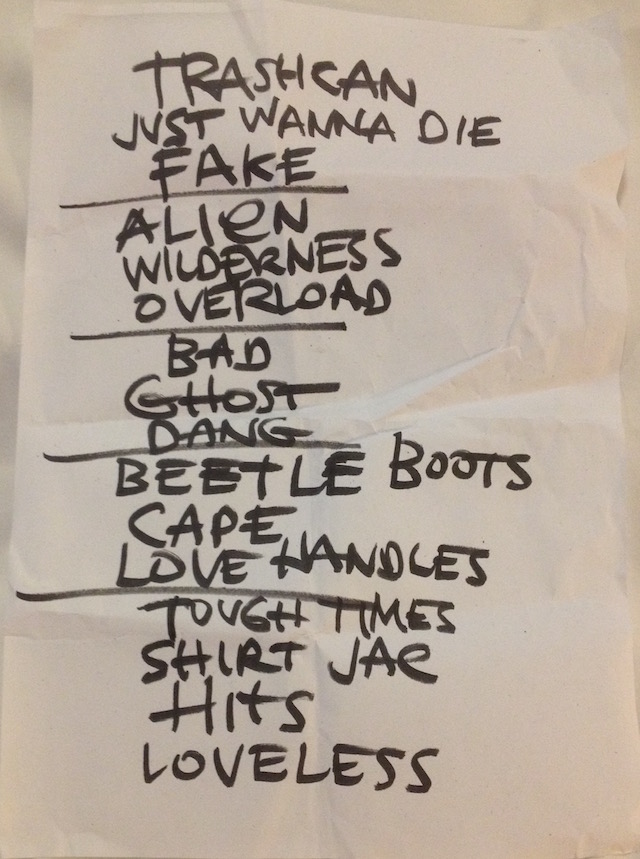 TRASHCAN
JUST WANNA DIE
FAKE
ALIeN
WILDERNESS
OVERLOAD
BAD
GHOST
DANG
BEETLE BOOTS
CAPE
LOVE HANDLES
TOUGH TIMES
SHIRT JAC
HITS
LOVELESS